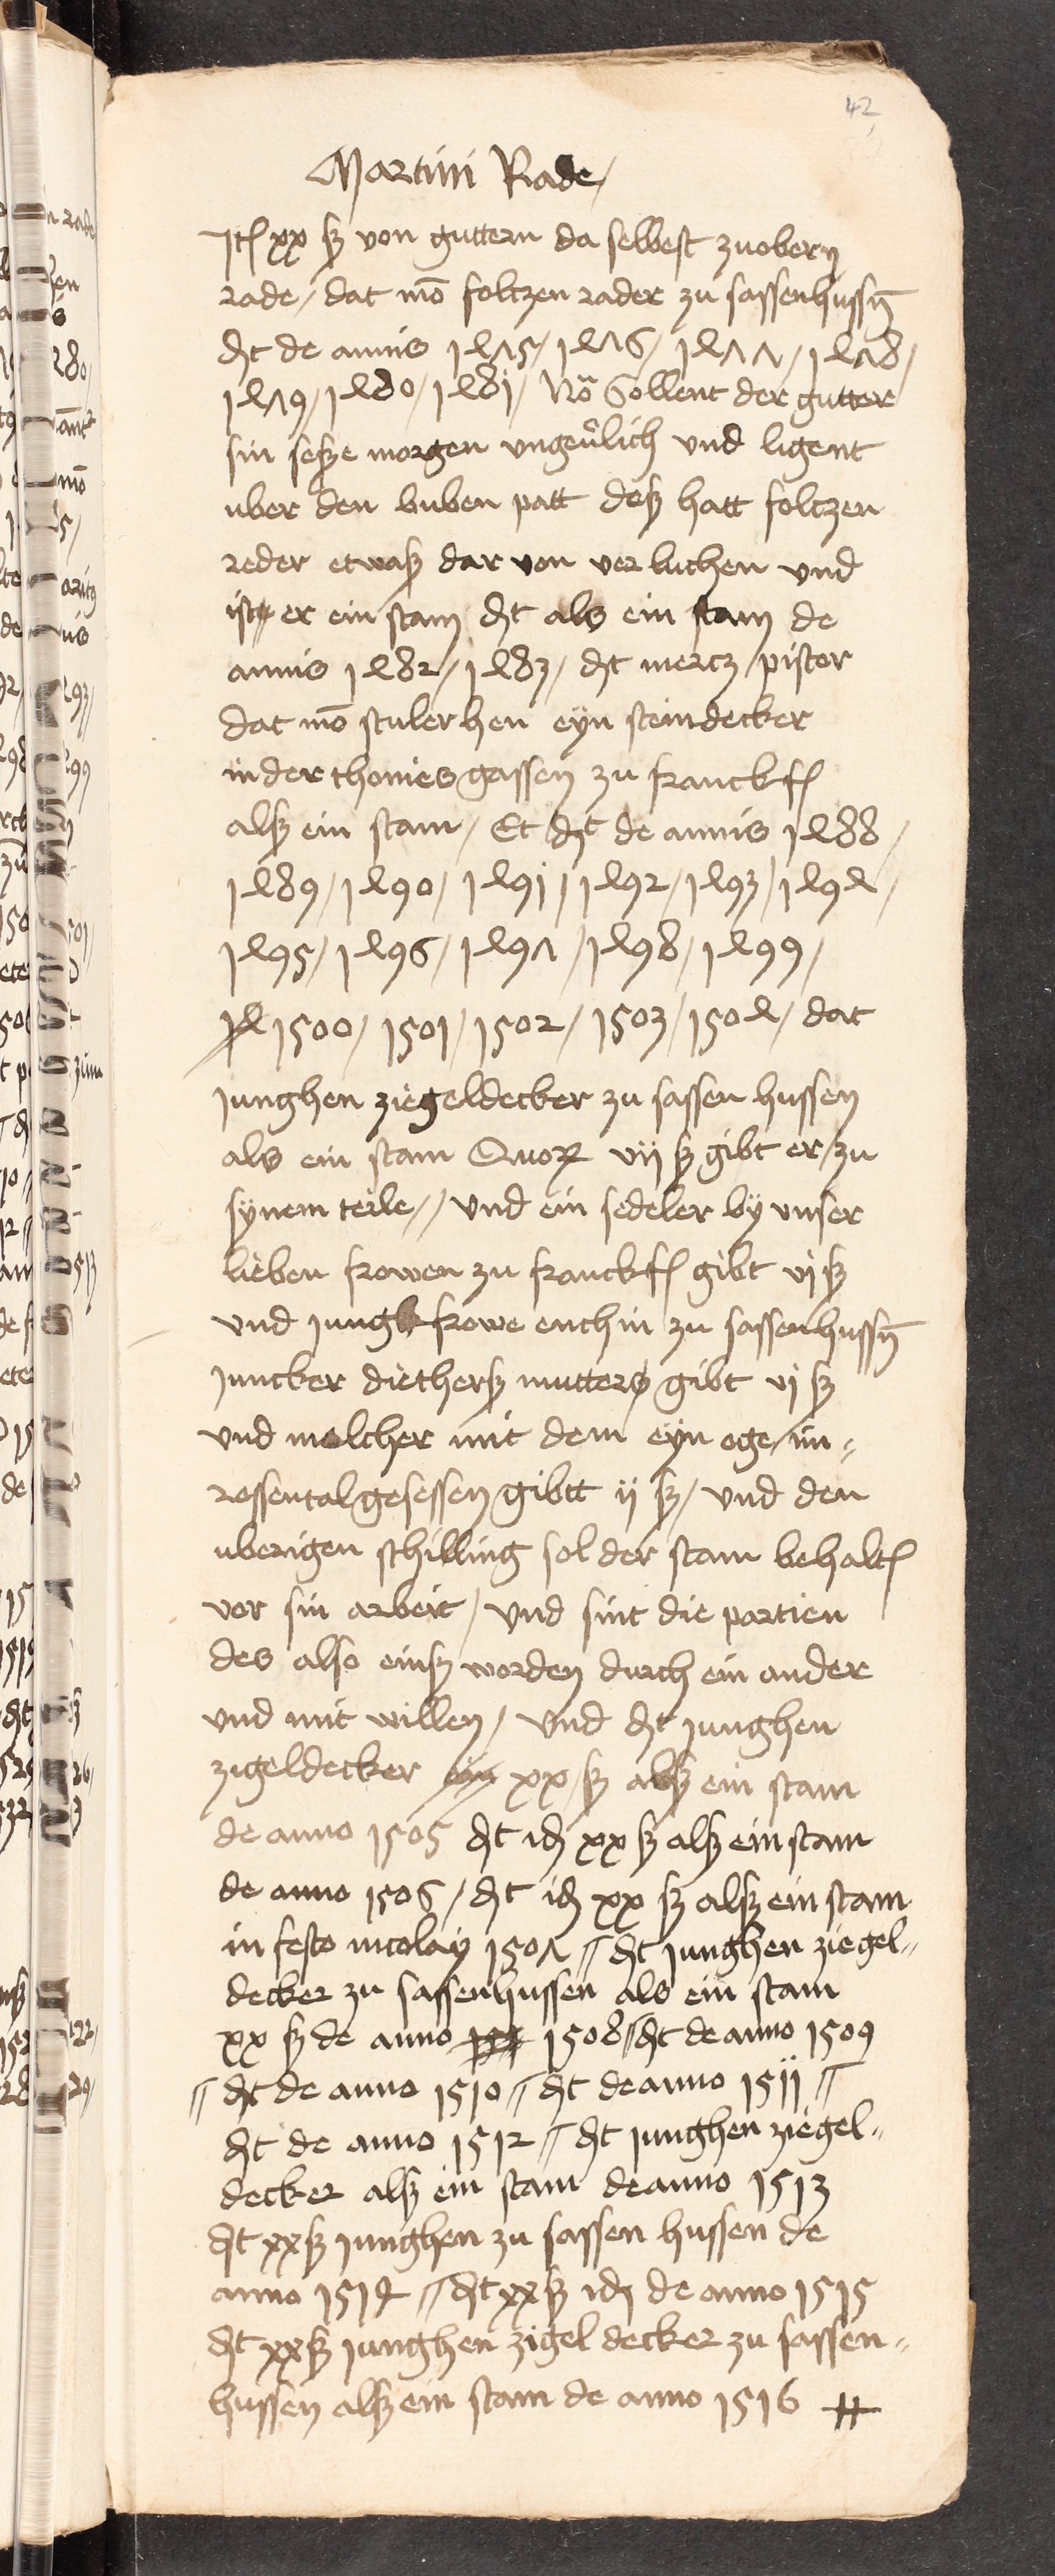 42
Martini Rade /
Jt xx ß von guttern da selbest zuobern
rade / dat mo foltzen rader zu sassenhussen
dt de annis 1475 / 1476 / 1477 / 1478 /
1479 / 1480 / 1481 / No Sollent der gutter
sin seße morgen ungeuerlich und ligent
uber den buben patt deß hatt foltzen
reder etwaß dar von verluchen und
ist er ein stam dt als ein stam de
annis 1482 / 1483 / dt mercz / pistor
dat mo stulerhen eyn steindecker
in der thoniesgassen zu franckf
alß ein stam / Et dt de annis 1488 /
1489 / 1490 / 1491 / 1492 / 1493 / 1494 /
1495 / 1496 / 1497 / 1498 / 1499 /
1500 / 1501 / 1502 / 1503 / 1504 / dat
junghen ziegeldecker zu sassen hussen
als ein stam Quor vij ß gibt er / zu
synem teile // und ein sedeler by unser
lieben frowen zu franckf gibt vj ß
und jungkfrowe enchin zu sassenhussen
juncker diethers mutters gibt vj ß
und molcher mit dem eyn oge / im
rossental gesessen gibtt ij ß / und den
uberigen schilling sol der stam behalt
vor sin arbeit / und sint die partien
des also einß worden durch ein ander
und mit willen / und dt junghen
zigeldecker xx / ß alß ein stam
de anno 1505 dt id xx ß alß ein stam
de anno 1506 / dt id xx ß alß ein stam
in festo nicolay 1507 // dt junghen ziegel//
decker zu sassenhussen als ein stam
xx ß de anno 1508 // dt de anno 1509
// dt de anno 1510 // dt de anno 1511 //
dt de anno 1512 // dt junghen ziegel//
decker alß ein stam de anno 1513
dt xx ß junghen zu sassen hussen de
anno 1514 // dt xx ß id de anno 1515
dt xx ß junghen zigel decker zu sassen//
hussen alß ein stam de anno 1516 #